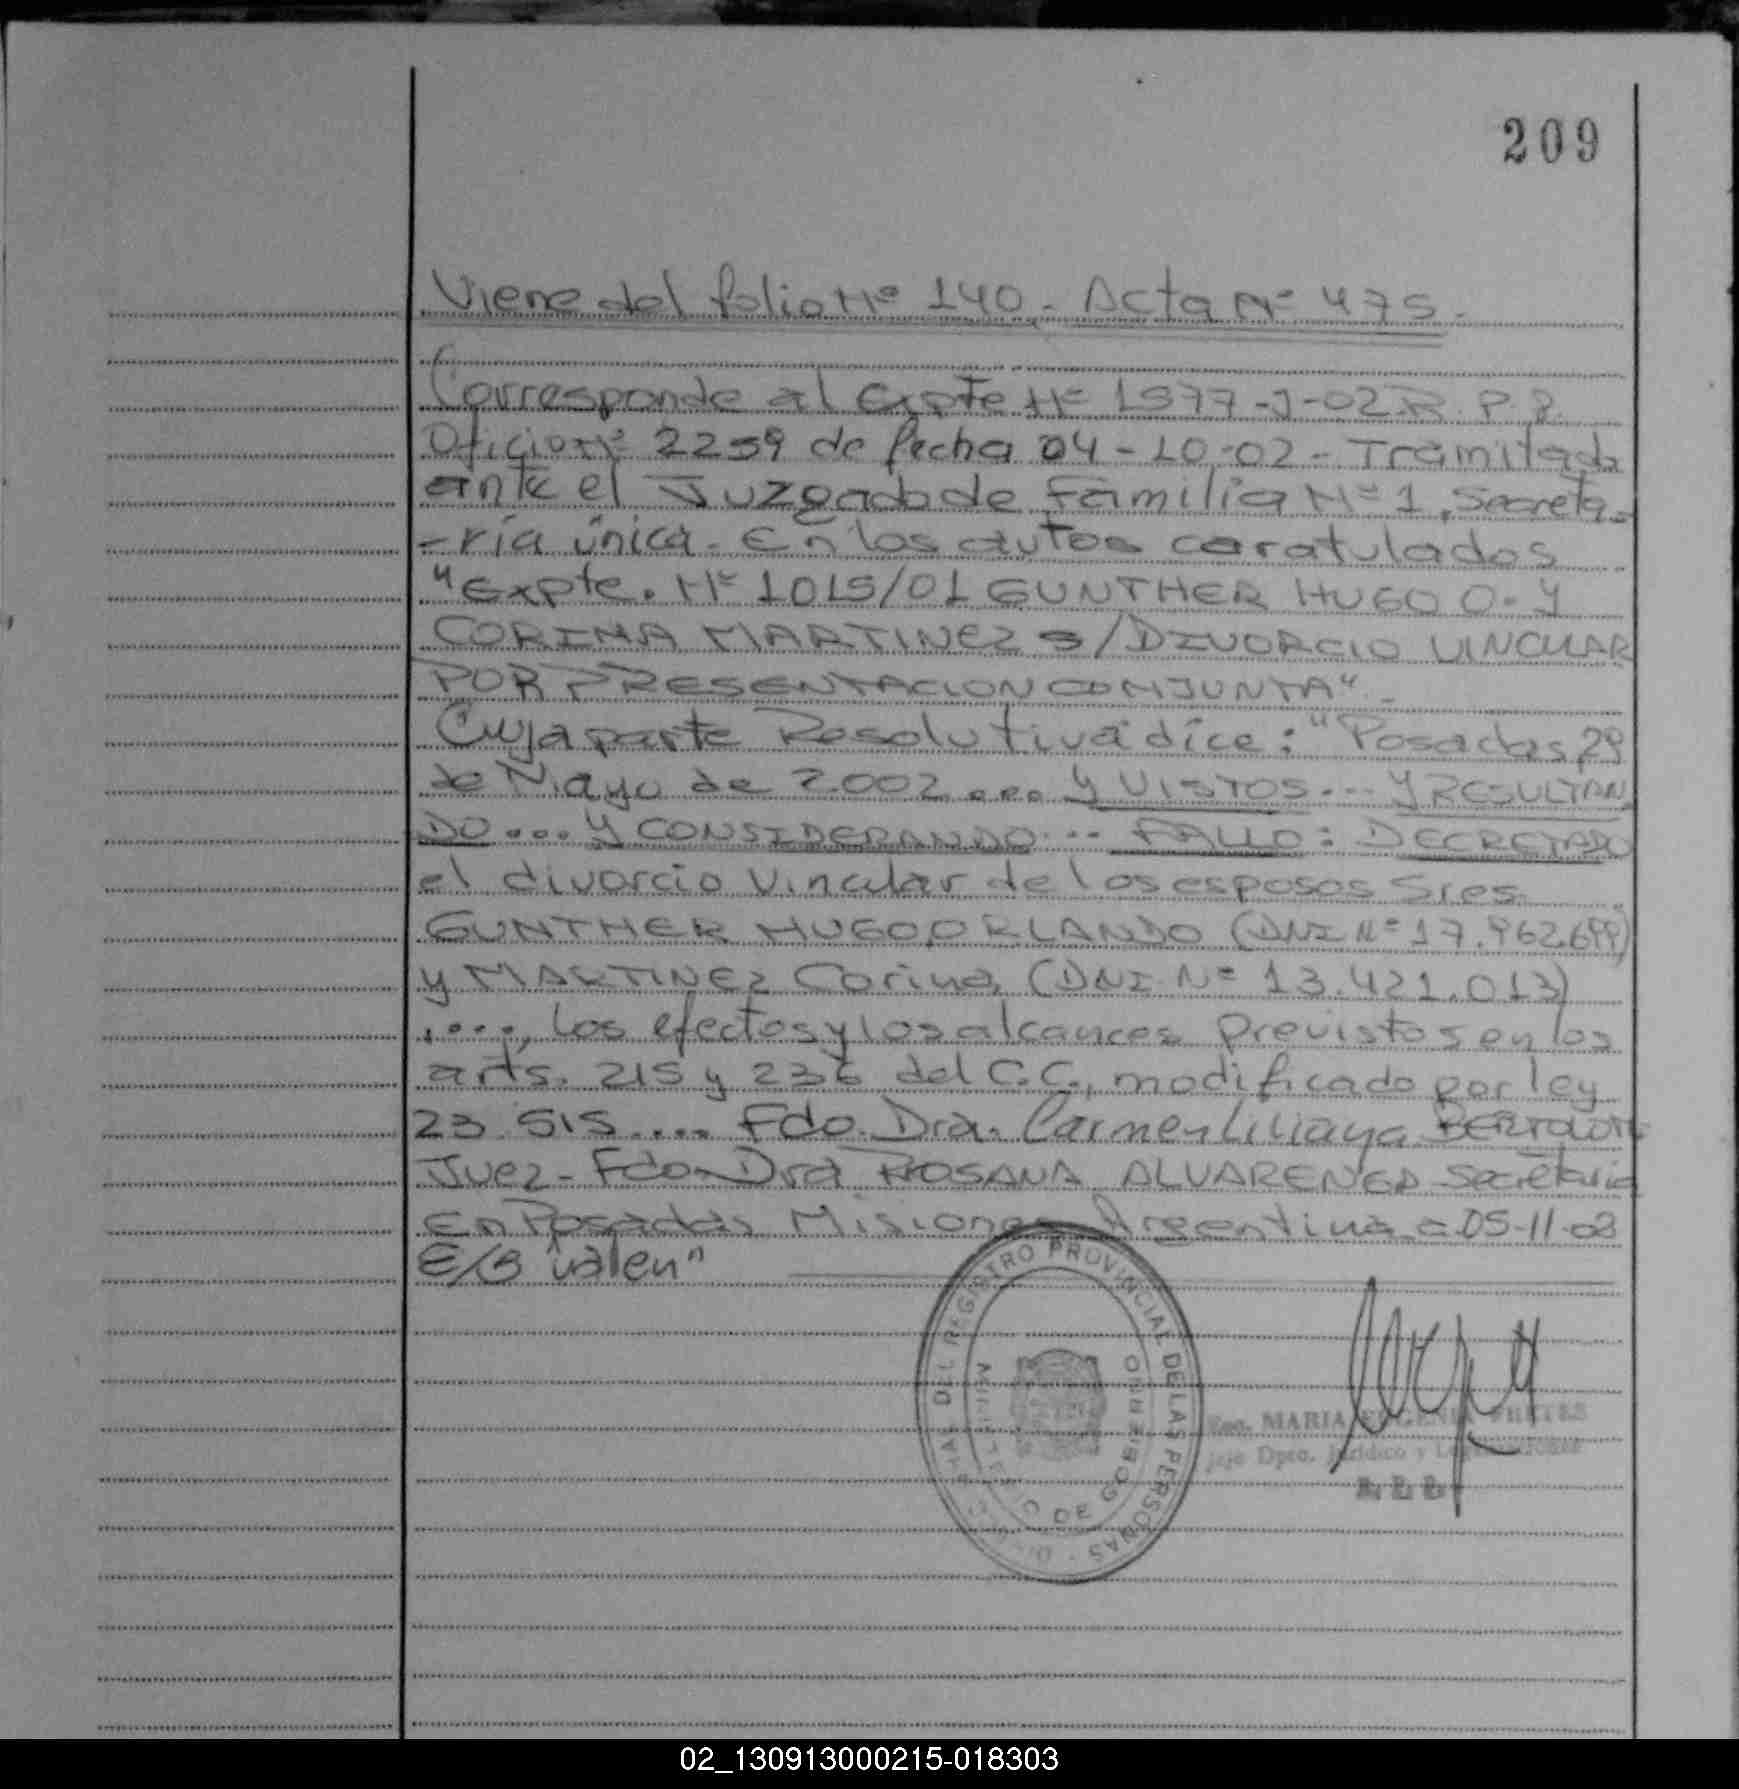 209
Viene del folio Nº 140.- Acta Nº 475.-
Corresponde al Expte Nº 1977-J-02 R.P.P.
Oficio Nº 2259 de fecha 04-10-02 - Tramitada
ante el Juzgado de Familia Nº 1, Secreta-
-ría única. En los autos caratulados
"Expte. Nº 1015/01 GUNTHER HUGO O. Y
CORINA MARTINEZ S/DIVORCIO VINCULAR
POR PRESENTACION CONJUNTA".-
Cuya parte Resolutiva dice: "Posadas, 29
de Mayo de 2002.... Y VISTOS... Y RESULTAN
DO... Y CONSIDERANDO... FALLO: DECRETADO
el divorcio Vincular de los esposos Sres.
GUNTHER HUGO ORLANDO (DNI Nº 17.962.699)
y MARTINEZ Corina (DNI Nº 13.421.013)
....., los efectos y los alcances previstos en los
arts. 215 y 236 del C.C., modificado por ley
23.515.... Fdo. Dra. Carmen Liliana
Juez - Fdo Dra ROSANA ALVARENGA Secretaria
En Posadas Misiones Argentina a 05-11-02
E/S valen"
DEL REGISTRO PROVINCIAL DE LAS PERSONAS
DE GOBIERNO
MARIA EUGENIA
Jefe Dpto. Jurídico y
02_130913000215-018303